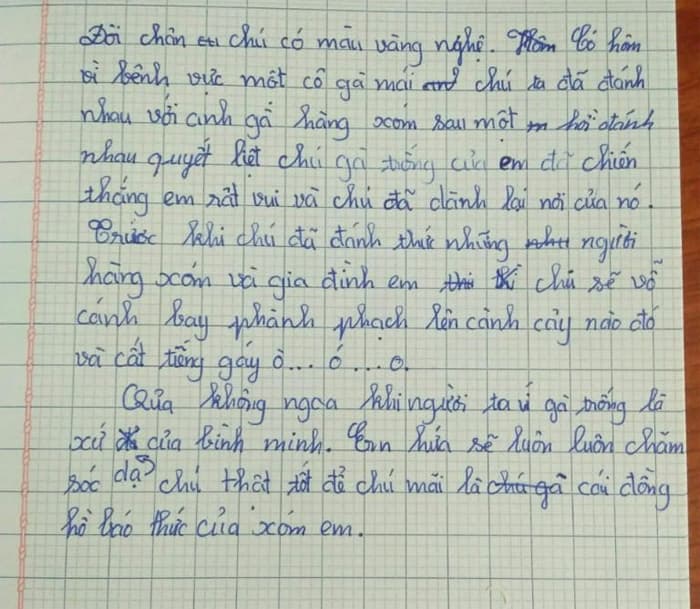 Đôi chân chú có màu vàng nghệ. Có hôm
vì bênh vực một cô gà mái chú ta đã đánh
nhau với anh gà hàng xóm sau một hồi đánh
nhau quyết liệt chú gà trống của em đã chiến
thắng em rất vui và chú đã dành lại nơi của nó.
Trước khi chú đã đánh thức những người
hàng xóm và gia đình em chú sẽ vỗ
cánh bay phành phạch lên cành cây nào đó
và cất tiếng gáy ò... ó... o.
Qủa không ngoa khi người ta ví gà trống là
xứ của bình minh. Em hứa sẽ luôn luôn chăm
sóc chú thật tốt để chú mãi là cái đồng
hồ báo thức của xóm em.